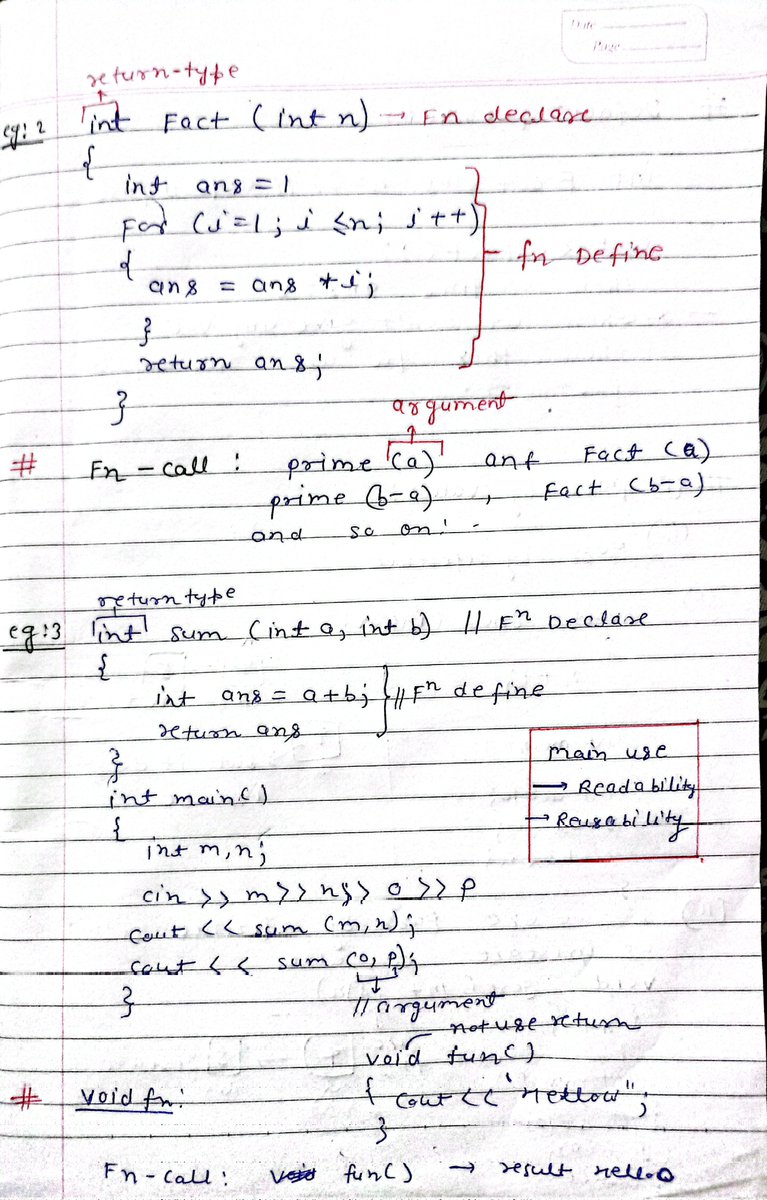 Date
Page
return-type
eg: 2 int Fact (int n) → Fn declare
{
int ans = 1
For (i=1; i ≤n; i++)
{
ans = ans * i;
fn Define
}
return ans;
}
argument
# Fn - call : prime (a) anf Fact (a)
prime (b-a) , Fact (b-a)
and so on: -
return type
eg:3 int sum (int a, int b) // Fn Declare
{
int ans = a+b; } // Fn define
return ans
}
main use
→ Readability
→ Reusability
int main()
{
int m,n;
cin >> m >> n >> o >> p
cout << sum (m,n);
cout << sum (o, p);
}
// argument
not use return
void fun()
# void fn: { cout << "Hellow";
}
Fn - Call : fun() → result hello